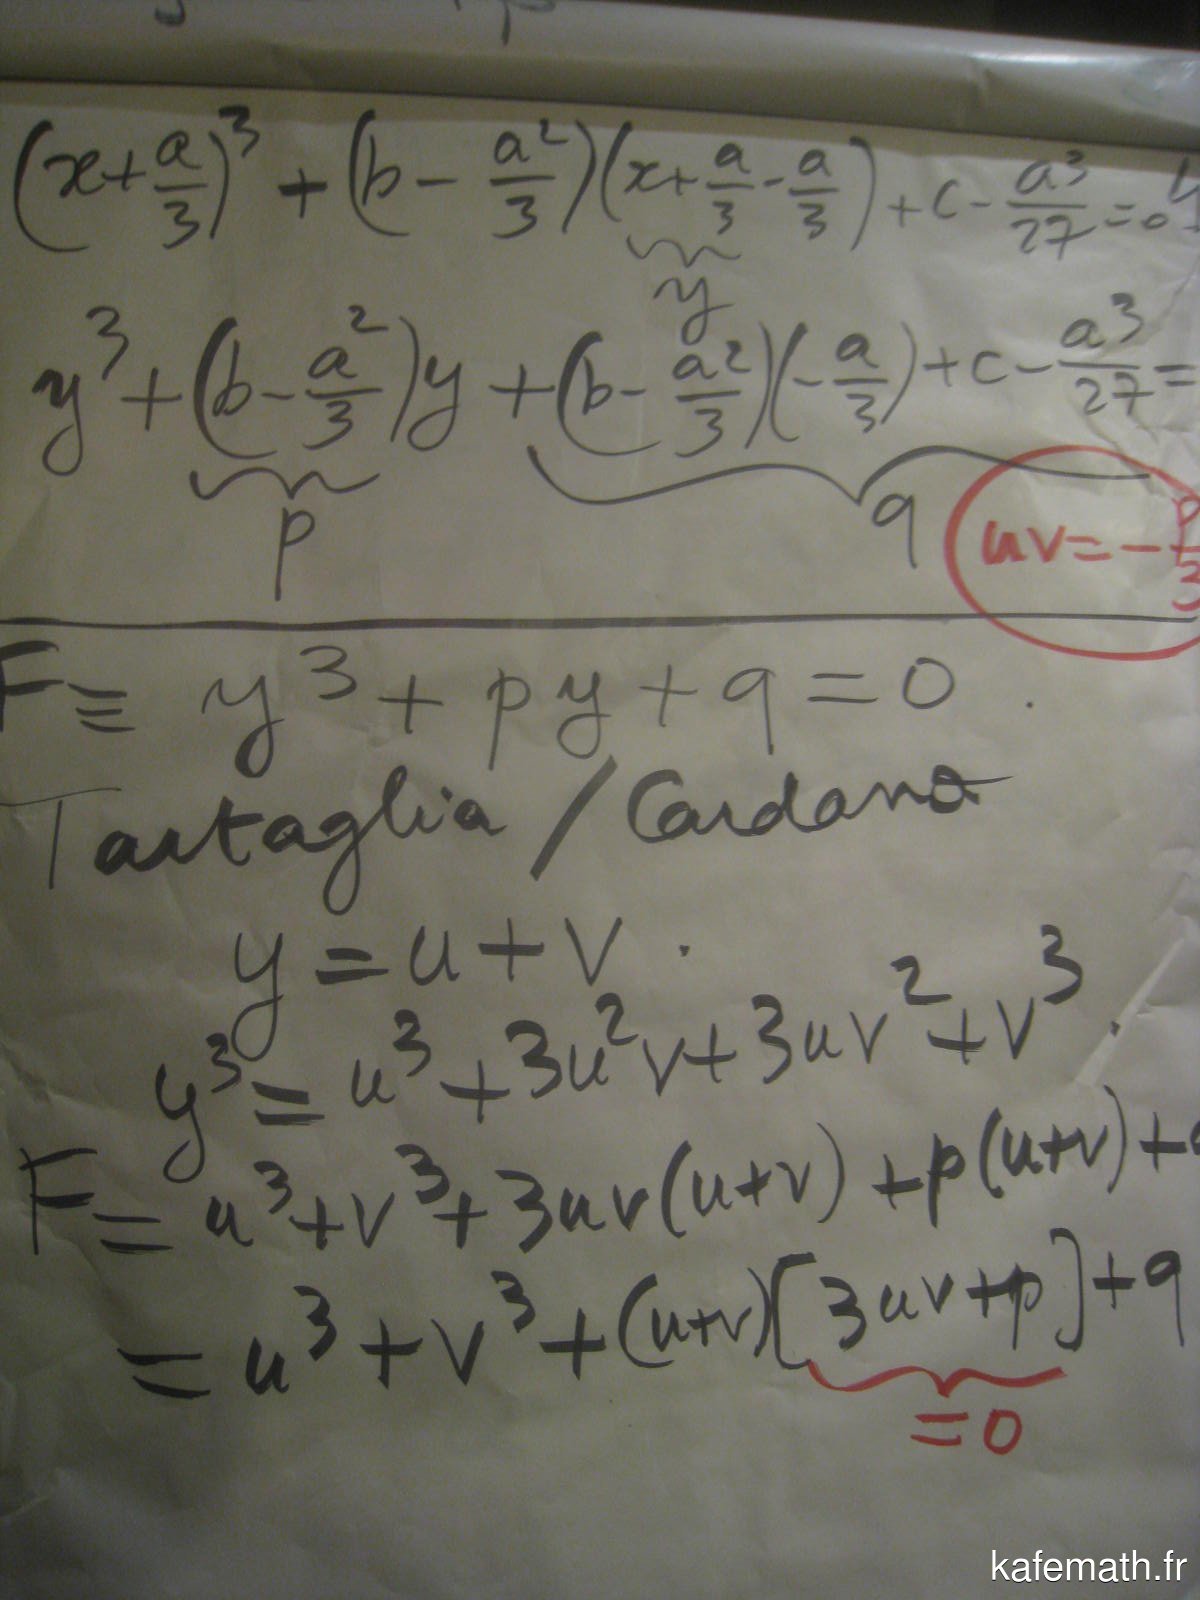 (x+a/3)³ + (b - a²/3)(x+a/3 - a/3) + c - a³/27 = 0
y
y³ + (b - a²/3)y + (b - a²/3)(-a/3) + c - a³/27 =
p q
uv = -p/3
F ≡ y³ + py + q = 0 .
Tartaglia / Cardano
y = u + v .
y³ = u³ + 3u²v + 3uv² + v³ .
F = u³ + v³ + 3uv(u+v) + p(u+v) +
= u³ + v³ + (u+v)[3uv+p] + q
= 0
kafemath.fr